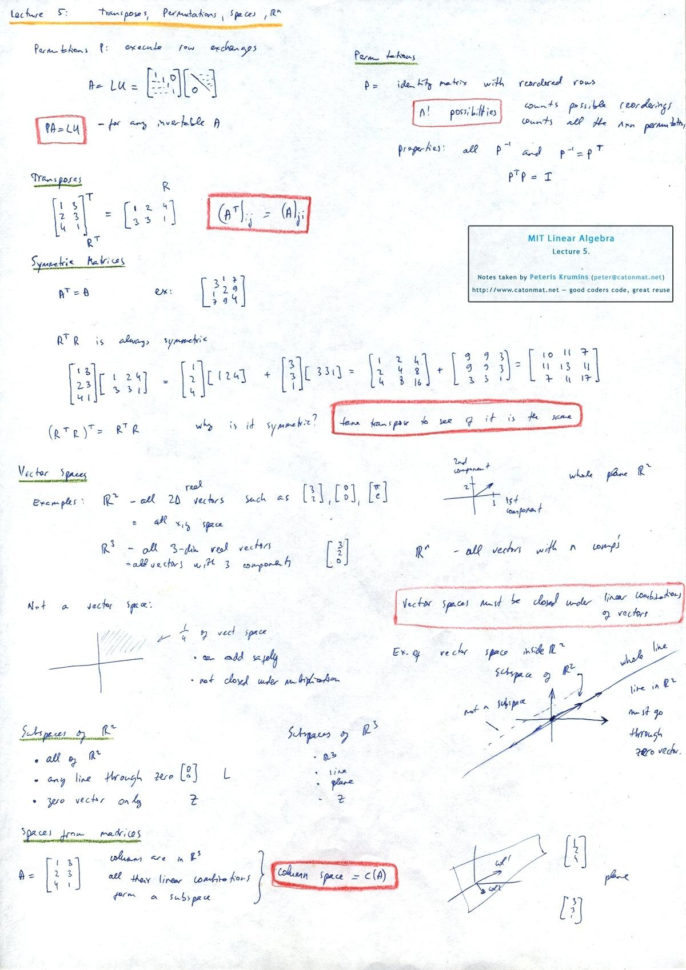 Lecture 5: Transposes, Permutations, spaces, Rⁿ
Permutations P: execute row exchanges
A = LU = [1 1 0 1]
PA = LU - for any invertable A
Permutations
P = identity matrix with reordered rows
n! possibilties counts possible reorderings
counts all the nxn permutations
properties: all P⁻¹ and P⁻¹ = Pᵀ
PᵀP = I
Transposes
R
[1 3; 2 3; 4 1]ᵀ = [1 2 4; 3 3 1] (Aᵀ)ij = (A)ji
Rᵀ
MIT Linear Algebra
Lecture 5.
Notes taken by Peteris Krumins (peter@catonmat.net)
http://www.catonmat.net – good coders code, great reuse
Symmetric Matrices
Aᵀ = A ex: [3 1 7; 1 2 9; 7 9 4]
RᵀR is always symmetric
[1 3; 2 3; 4 1] [1 2 4; 3 3 1] = [1; 2; 4] [1 2 4] + [3; 3; 1] [3 3 1] = [1 2 4; 2 4 8; 4 8 16] + [9 9 3; 9 9 3; 3 3 1] = [10 11 7; 11 13 11; 7 11 17]
(RᵀR)ᵀ = RᵀR why is it symmetric? take transpose to see if it is the same
Vector Spaces
real
Examples: R² - all 2D vectors such as [3; 2], [0; 0], [π; e]
= all x,y space
2nd component
2
3
1st component
whole plane R²
R³ - all 3-dim real vectors [3; 2; 0]
- all vectors with 3 components
Rⁿ - all vectors with n comp's
Not a vector space:
1/4 of vect space
• can add safely
• not closed under multiplication
Vector spaces must be closed under linear combinations
of vectors
Ex. of vector space inside R²
subspace of R²
whole line
not a subspace
line in R²
must go
through
zero vector.
Subspaces of R²
• all of R²
• any line through zero [0; 0] L
• zero vector only Z
Subspaces of R³
- R³
- line
- plane
- Z
Spaces from matrices
A = [1 3; 2 3; 4 1]
columns are in R³
all their linear combinations
form a subspace
column space = C(A)
col1
[1; 2; 4]
plane
[3; 3; 1]